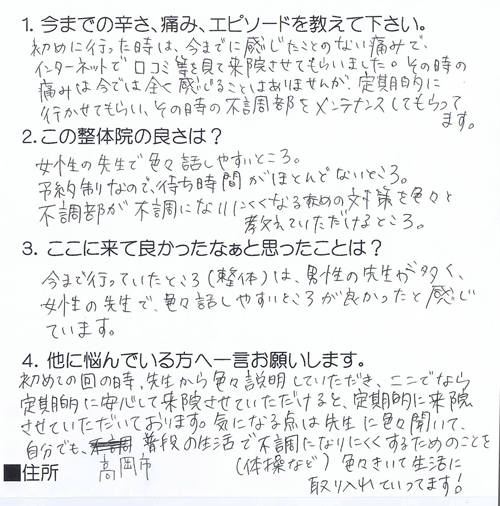 1. 今までの辛さ、痛み、エピソードを教えて下さい。
初めに行った時は、今までに感じたことのない痛みで、
インターネットで口コミ等を見て来院させてもらいました。その時の
痛みは今では全く感じることはありませんが、定期的に
行かせてもらい、その時の不調部をメンテナンスしてもらって
ます。
2.この整体院の良さは？
女性の先生で色々話しやすいところ。
予約制なので、待ち時間がほとんどないところ。
不調部が不調になりにくくなるための対策を色々と
教えていただけるところ。
3. ここに来て良かったなぁと思ったことは？
今まで行っていたところ(整体)は、男性の先生が多く、
女性の先生で、色々話しやすいところが良かったと感じ
ています。
4. 他に悩んでいる方へ一言お願いします。
初めての回の時、先生から色々説明していただき、ここでなら
定期的に安心して来院させていただけると、定期的に来院
させていただいております。気になる点は先生に色々聞いて、
自分でも、普段の生活で不調になりにくくするためのことを
(体操など)色々きいて生活に
取り入れていってます!
■住所 高岡市